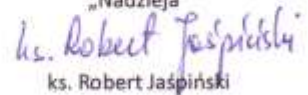 „Nadzieja"
ks. Robert Jaśpiński
ks. Robert Jaśpiński